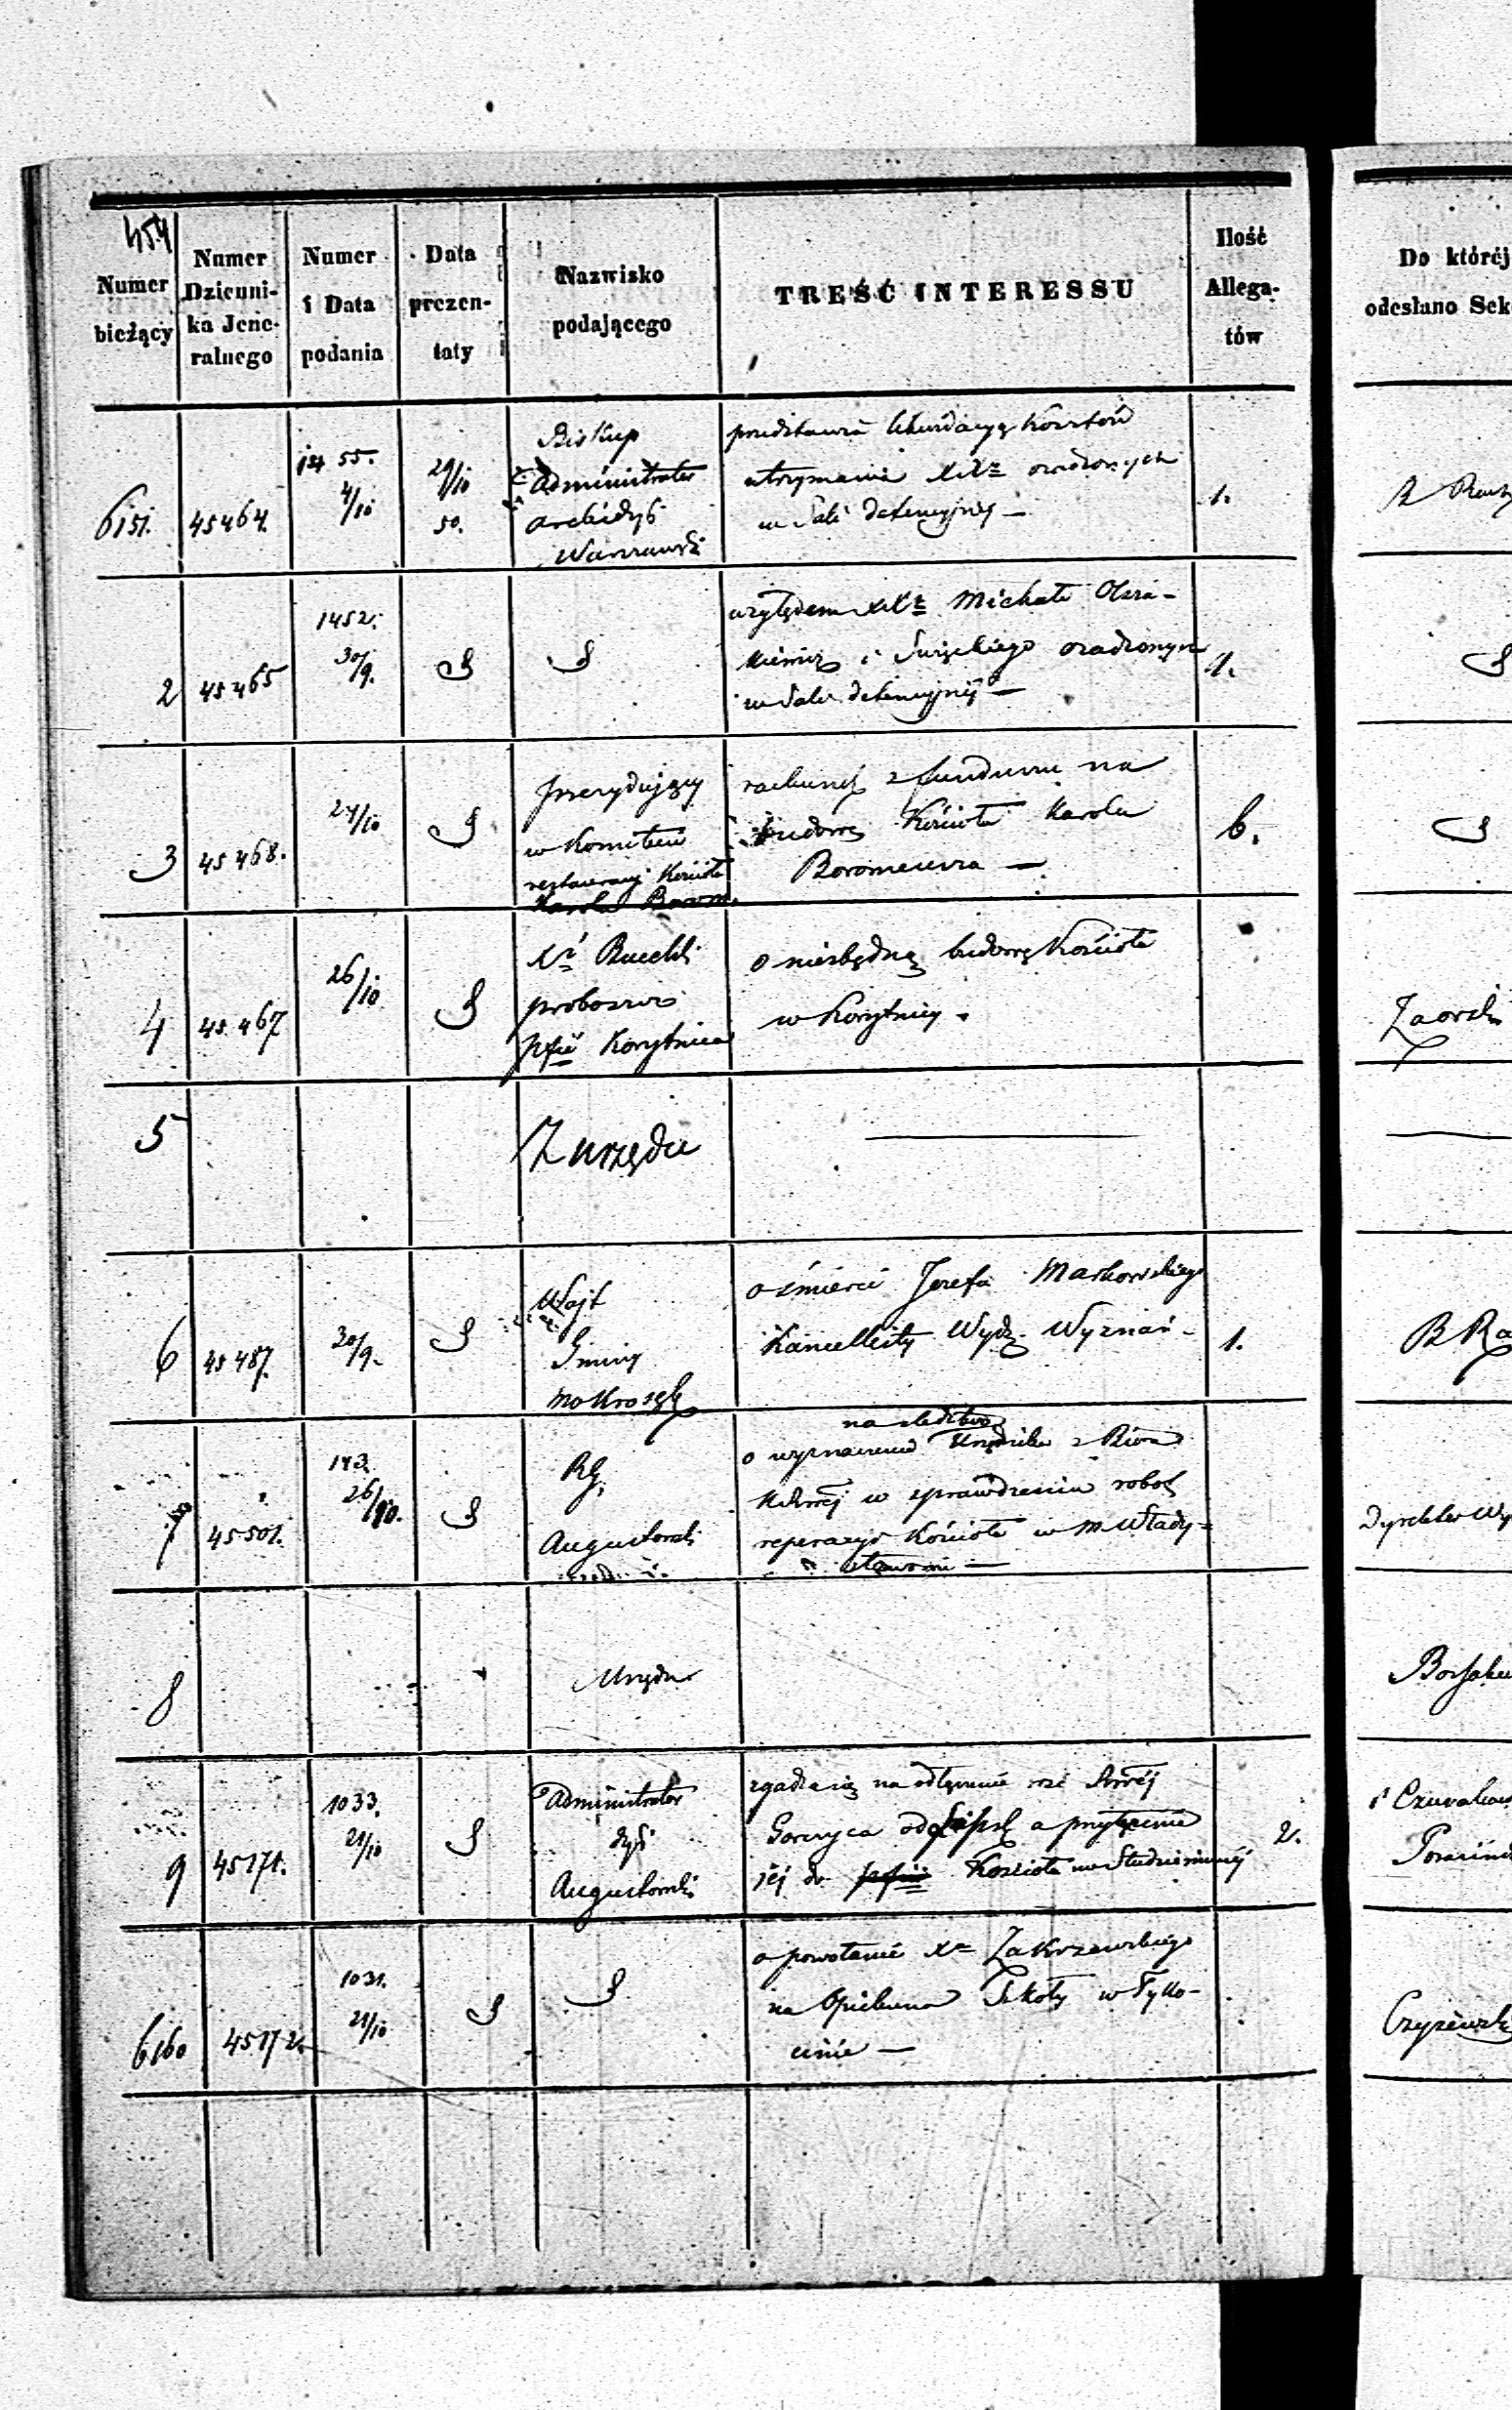 454
Numer
bieżący
Numer
Dzienni-
ka Jene-
ralnego
Numer
i Data
podania
Data
prezen-
taty
Nazwisko
podającego
TREŚĆ INTERESSU
Ilość
Allega-
tów
Do któréj
odesłano Sek
6151.
45464.
55.
4/10
29/10
50.
Biskup
Administrator
archidyś
Warszawski
przedstawia likwidacyą kosztów
utrzymania XXż osadzonych
w Sali detencyjnéj —
1.
R
2
45465
1452.
30/9.
względem XXż Michała
i osadzonych
w Sali detencyjnéj —
1.
3
45468.
24/10
prezydujący
w Komitecie
restauracyi Kościoła
Karola Borom.
rachunek z funduszu na
budowę Kościoła Karola
Boromeusza —
6.
4
45467
26/10
Xż
proboszcz
pfii Korytnica
o niezbędną budowę Kościoła
w Korytnicy.
Zaorski
5
Z urzędu
6
45487.
30/9.
Wójt
Gminy
Mokrosęk
o śmierci Józefa Markowskiego
Kancellisty Wydz. Wyznań.
1.
7
45501.
143.
26/10.
RG
Augustowski
na śledztwo
o wyznaczenie Urzędnika z Biura
w sprawdzeniu robot
reperacyi Kościoła w m. Włady-
sławowie —
Dyrektor Wy
8
Urzędu
9
45171.
1033.
21/10
Administrator
dyś
Augustowski
zgadza się na odłączenie wsi
Gorczyca od a przyłączenie
jéj do pfii Kościoła w Studzienicznéj
2.
6160
45172.
1031.
21/10
o powołanie Xa Zakrzewskiego
na Opiekuna Szkoły w Tyko-
cinie —
Czyżewski